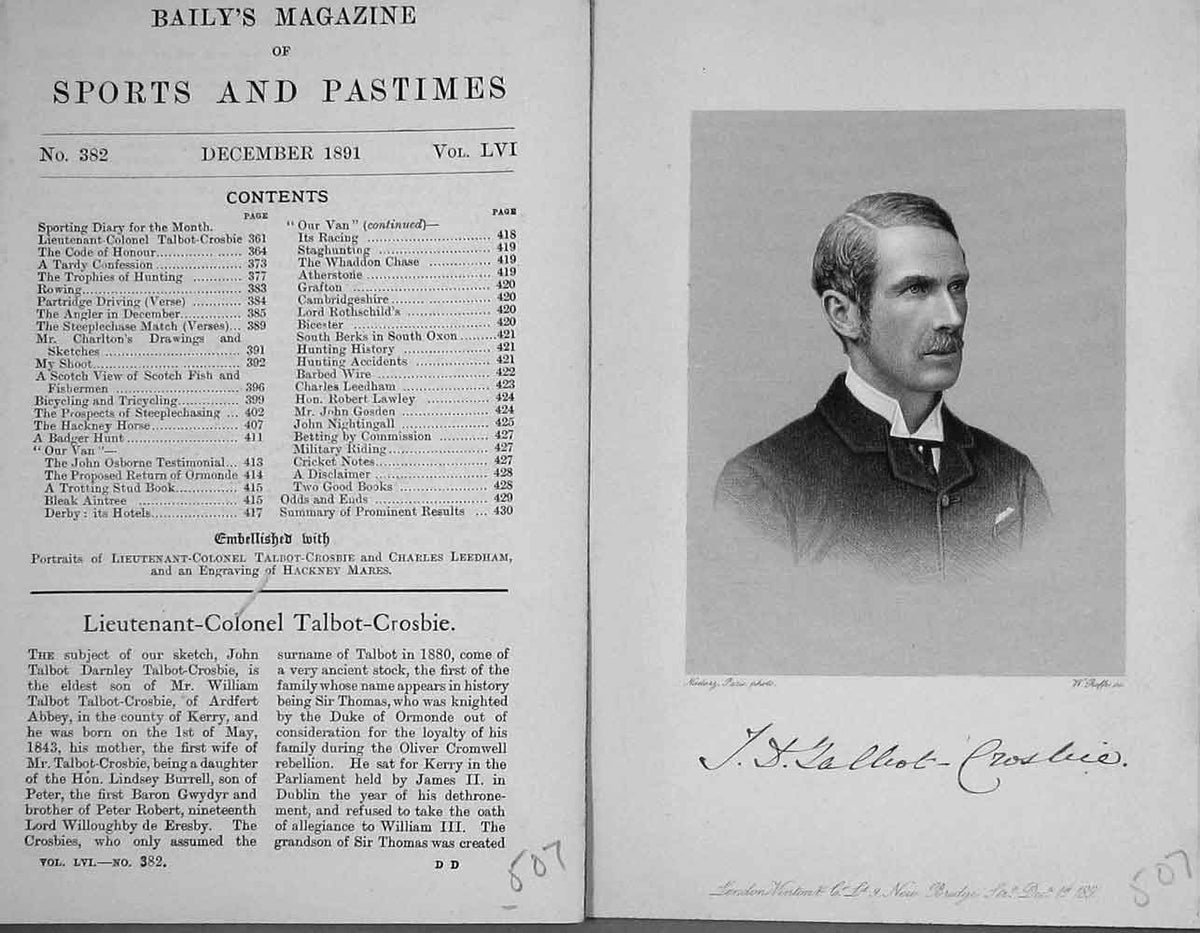 BAILY'S MAGAZINE
OF
SPORTS AND PASTIMES
No. 382 DECEMBER 1891 VOL. LVI
CONTENTS
PAGE
Sporting Diary for the Month.
Lieutenant-Colonel Talbot-Crosbie 361
The Code of Honour..................... 364
A Tardy Confession ..................... 373
The Trophies of Hunting ............ 377
Rowing....................................... 383
Partridge Driving (Verse) ............ 384
The Angler in December............... 385
The Steeplechase Match (Verses)... 389
Mr. Charlton's Drawings and
Sketches .................................. 391
My Shoot.................................... 392
A Scotch View of Scotch Fish and
Fishermen .............................. 396
Bicycling and Tricycling............... 399
The Prospects of Steeplechasing ... 402
The Hackney Horse..................... 407
A Badger Hunt ........................... 411
"Our Van"—
The John Osborne Testimonial... 413
The Proposed Return of Ormonde 414
A Trotting Stud Book............... 415
Bleak Aintree ........................ 415
Derby: its Hotels..................... 417
PAGE
"Our Van" (continued)—
Its Racing .............................. 418
Staghunting ........................... 419
The Whaddon Chase ............... 419
Atherstone .............................. 419
Grafton ................................. 420
Cambridgeshire ........................ 420
Lord Rothschild's ..................... 420
Bicester ................................. 420
South Berks in South Oxon......... 421
Hunting History ..................... 421
Hunting Accidents .................. 421
Barbed Wire ........................... 422
Charles Leedham ..................... 423
Hon. Robert Lawley ............... 424
Mr. John Gosden ..................... 424
John Nightingall ..................... 425
Betting by Commission ............ 427
Military Riding........................ 427
Cricket Notes........................... 427
A Disclaimer ........................... 428
Two Good Books ..................... 428
Odds and Ends ........................... 429
Summary of Prominent Results ... 430
Embellished with
Portraits of LIEUTENANT-COLONEL TALBOT-CROSBIE and CHARLES LEEDHAM,
and an Engraving of HACKNEY MARES.
Lieutenant-Colonel Talbot-Crosbie.
THE subject of our sketch, John
Talbot Darnley Talbot-Crosbie, is
the eldest son of Mr. William
Talbot Talbot-Crosbie, of Ardfert
Abbey, in the county of Kerry, and
he was born on the 1st of May,
1843, his mother, the first wife of
Mr. Talbot-Crosbie, being a daughter
of the Hon. Lindsey Burrell, son of
Peter, the first Baron Gwydyr and
brother of Peter Robert, nineteenth
Lord Willoughby de Eresby. The
Crosbies, who only assumed the
surname of Talbot in 1880, come of
a very ancient stock, the first of the
family whose name appears in history
being Sir Thomas, who was knighted
by the Duke of Ormonde out of
consideration for the loyalty of his
family during the Oliver Cromwell
rebellion. He sat for Kerry in the
Parliament held by James II. in
Dublin the year of his dethrone-
ment, and refused to take the oath
of allegiance to William III. The
grandson of Sir Thomas was created
VOL. LVI.—NO. 382. D D
507
Paris, photo.
J. D. Talbot-Crosbie.
London Vinton & Co. Ld. 9, New Bridge Str. Dec. 1st 189
507